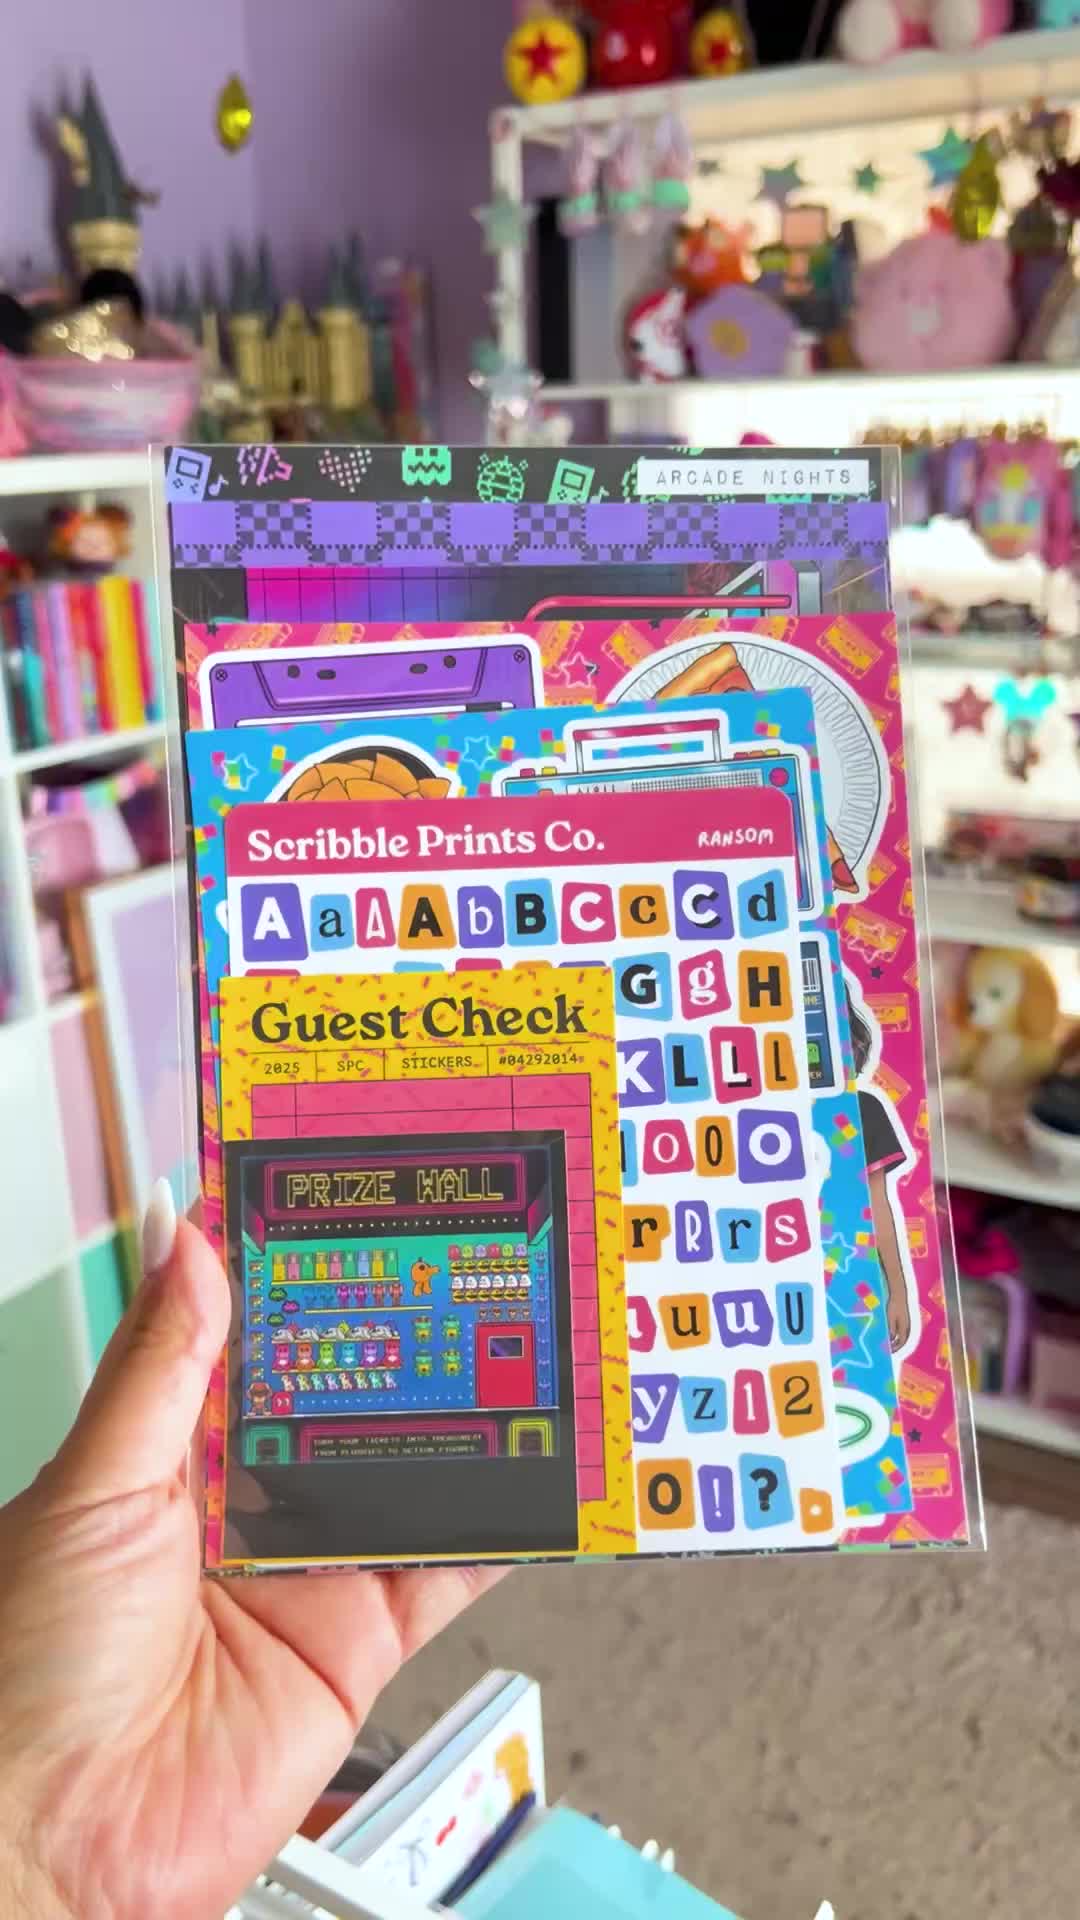 ARCADE NIGHTS
Scribble Prints Co. RANSOM
A a A A b B C c C d
G g H
K L L l
l o O 0 O
r R r s
u u u U
y z 1 2
0 ! ?
Guest Check
2025 SPC STICKERS #04292014
PRIZE WALL
TURN YOUR TICKETS INTO TREASURES!
FROM PLUSHIES TO ACTION FIGURES.